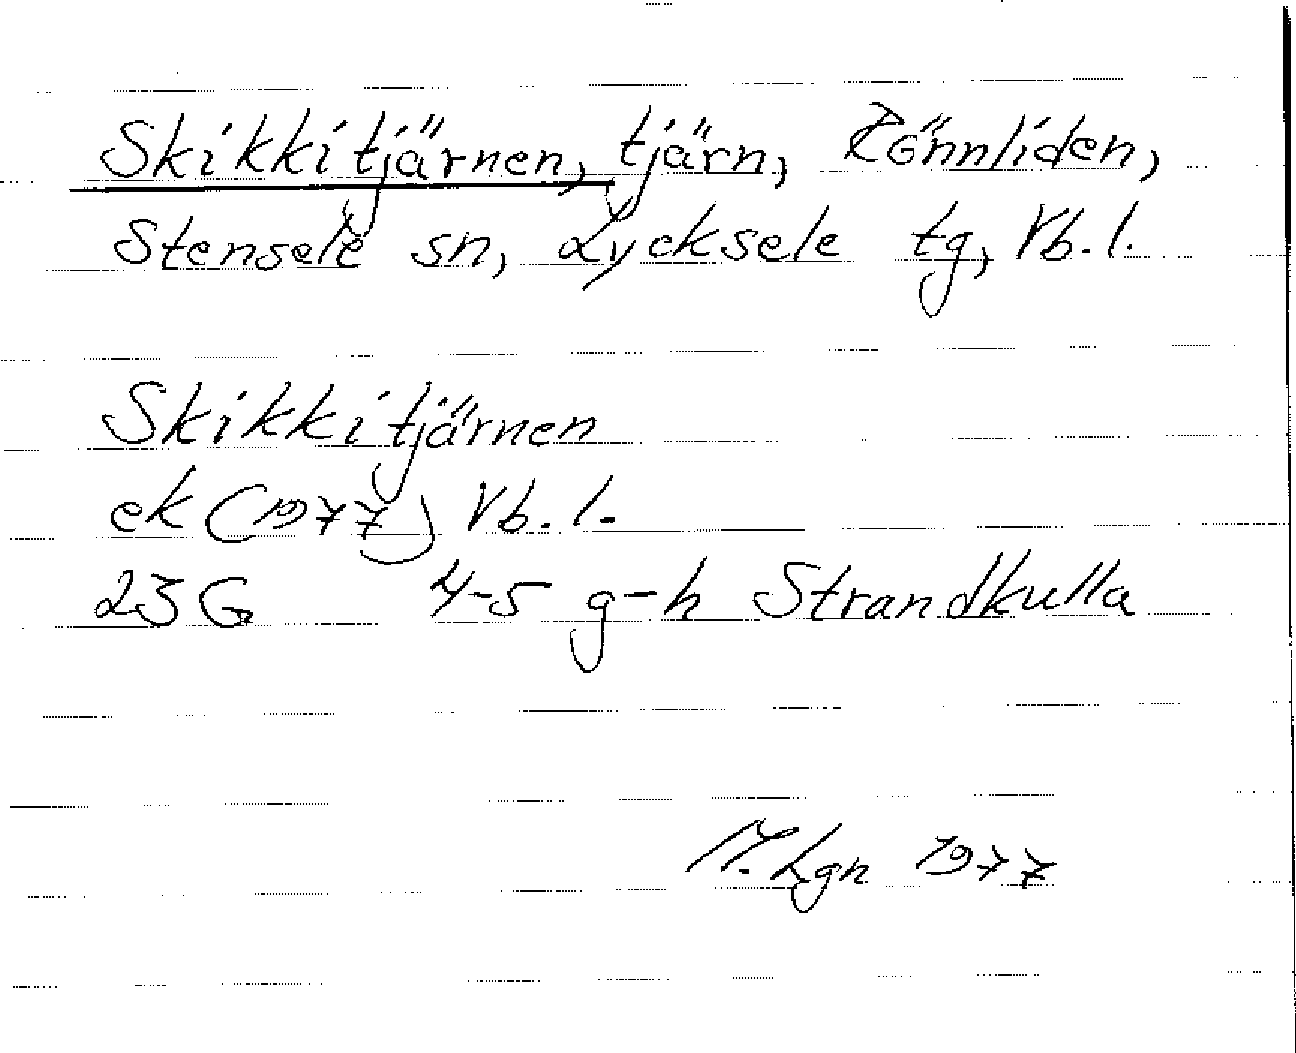 Skikkitjärnen, tjärn, Rönnliden,
Stensele sn, Lycksele tg, Vb. l.
Skikkitjärnen
ek (1977) Vb. l.
23 G 4-5 g-h Strandkulla
M. Lgn 1977